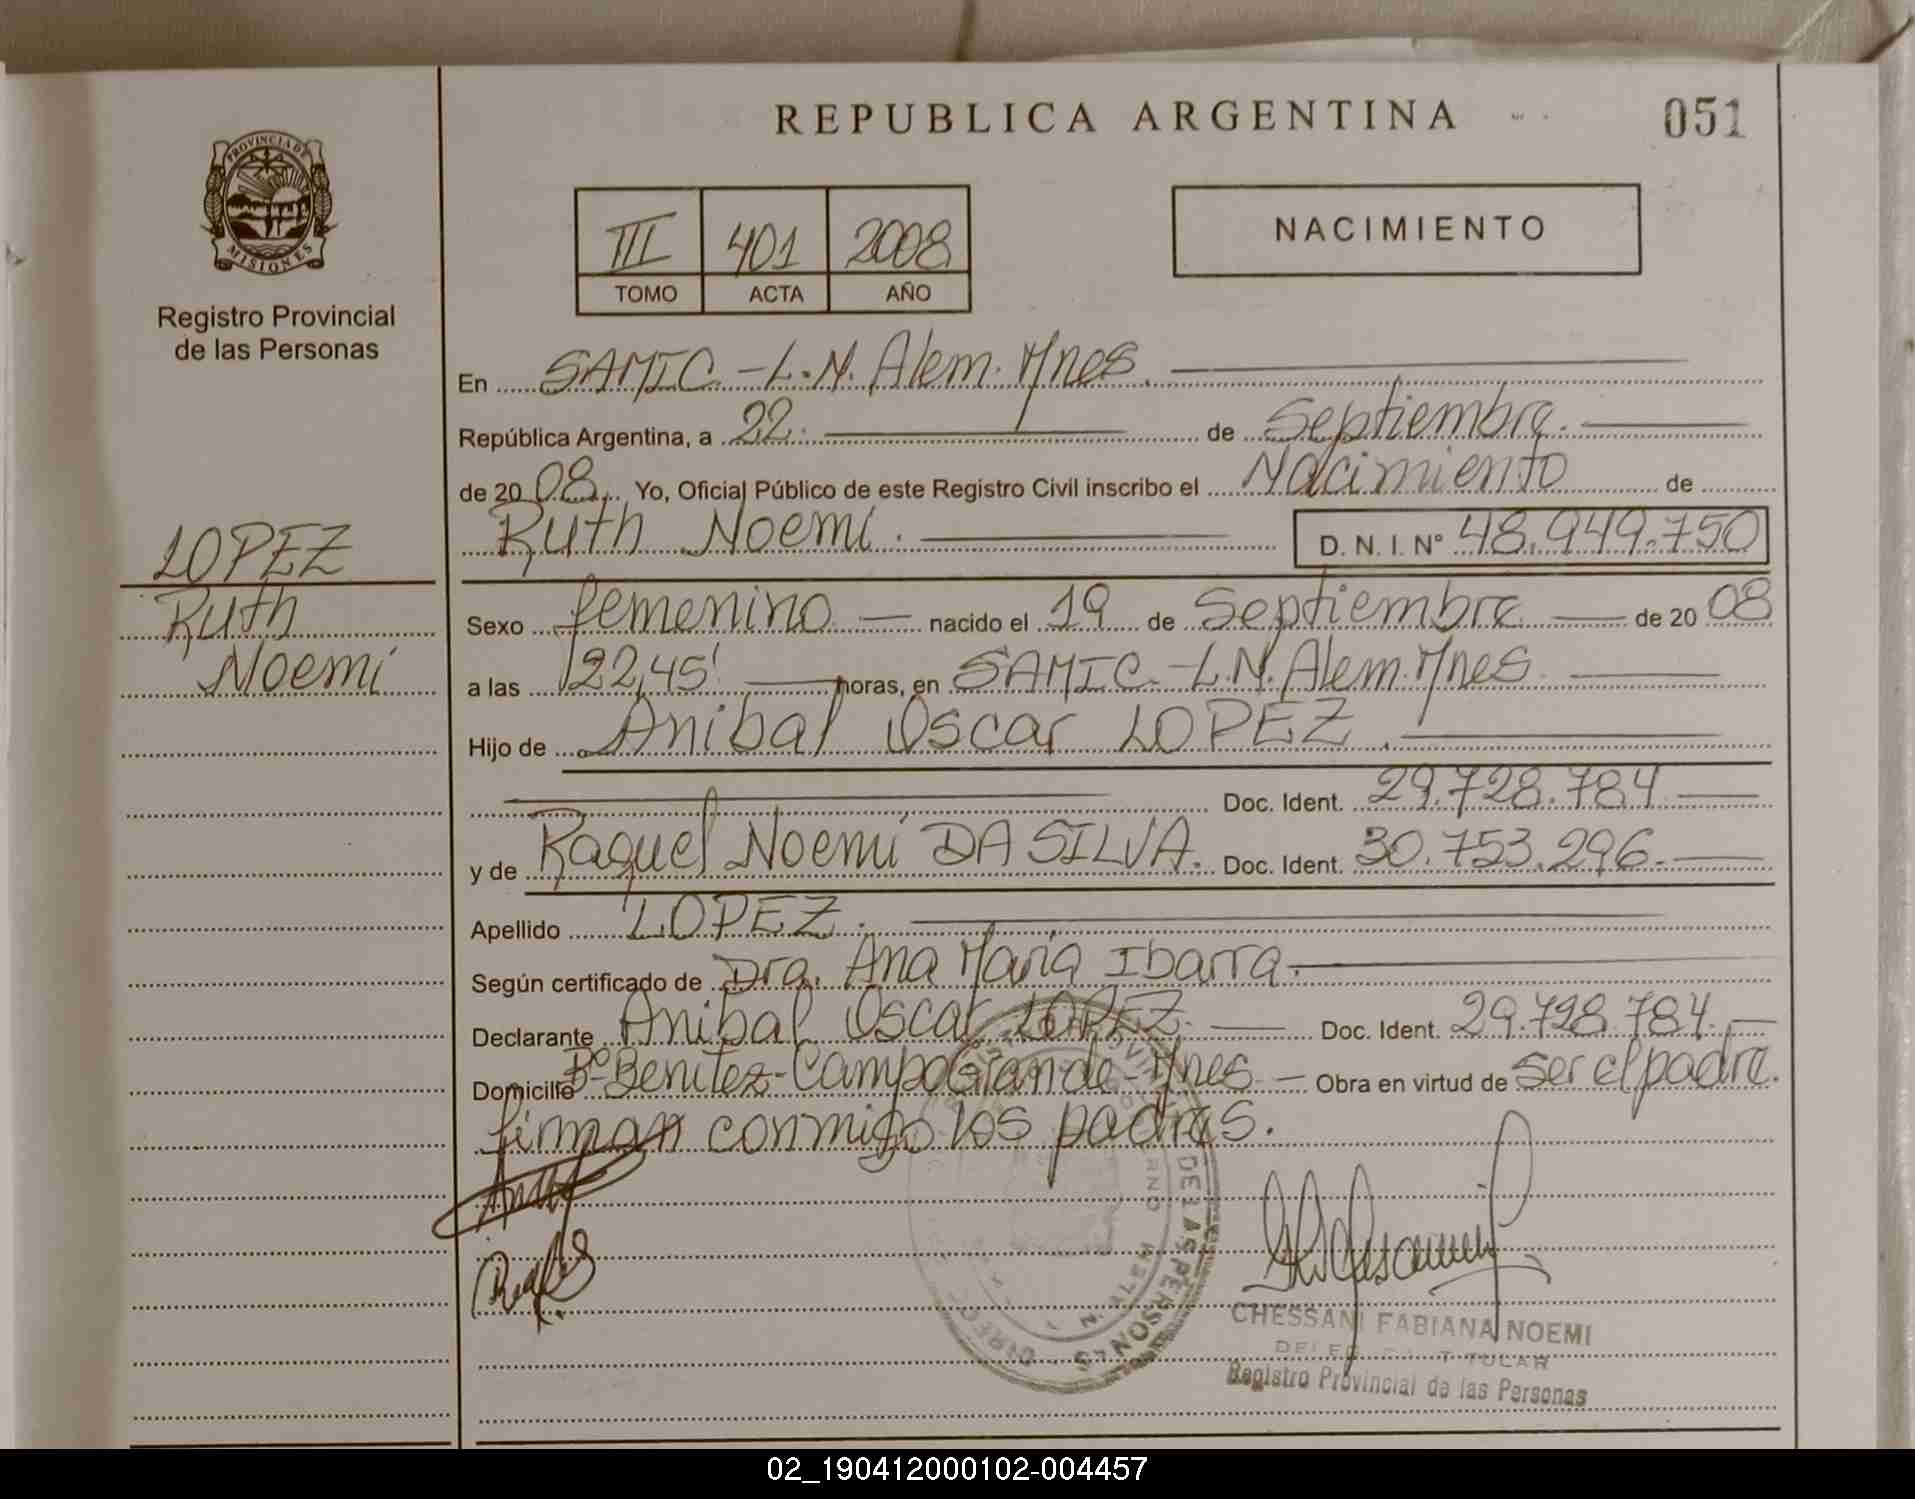 REPUBLICA ARGENTINA
051
PROVINCIA DE
MISIONES
Registro Provincial
de las Personas
III 401 2008
TOMO ACTA AÑO
NACIMIENTO
En SAMIC.-L.N.Alem.Mnes.
República Argentina, a 22. de Septiembre.
de 20 08. Yo, Oficial Público de este Registro Civil inscribo el Nacimiento de
Ruth Noemí. D. N. I. Nº 48.949.750
LOPEZ
Ruth
Noemí
Sexo femenino nacido el 19 de Septiembre de 20 08
a las 22,45' horas, en SAMIC.-L.N.Alem.Mnes
Hijo de Anibal Oscar LOPEZ.
Doc. Ident. 29.728.784
y de Raquel Noemí DA SILVA. Doc. Ident. 30.753.296.
Apellido LOPEZ.
Según certificado de Dra. Ana María Ibarra.
Declarante Anibal Oscar LOPEZ. Doc. Ident. 29.728.784.
Domicilio Bº Benitez-Campo Grande-Mnes. Obra en virtud de ser el padre.
firman conmigo los padres.
DE LAS PERSONAS
N. ALEM
CHESSANI FABIANA NOEMI
TITULAR
Registro Provincial de las Personas
02_190412000102-004457